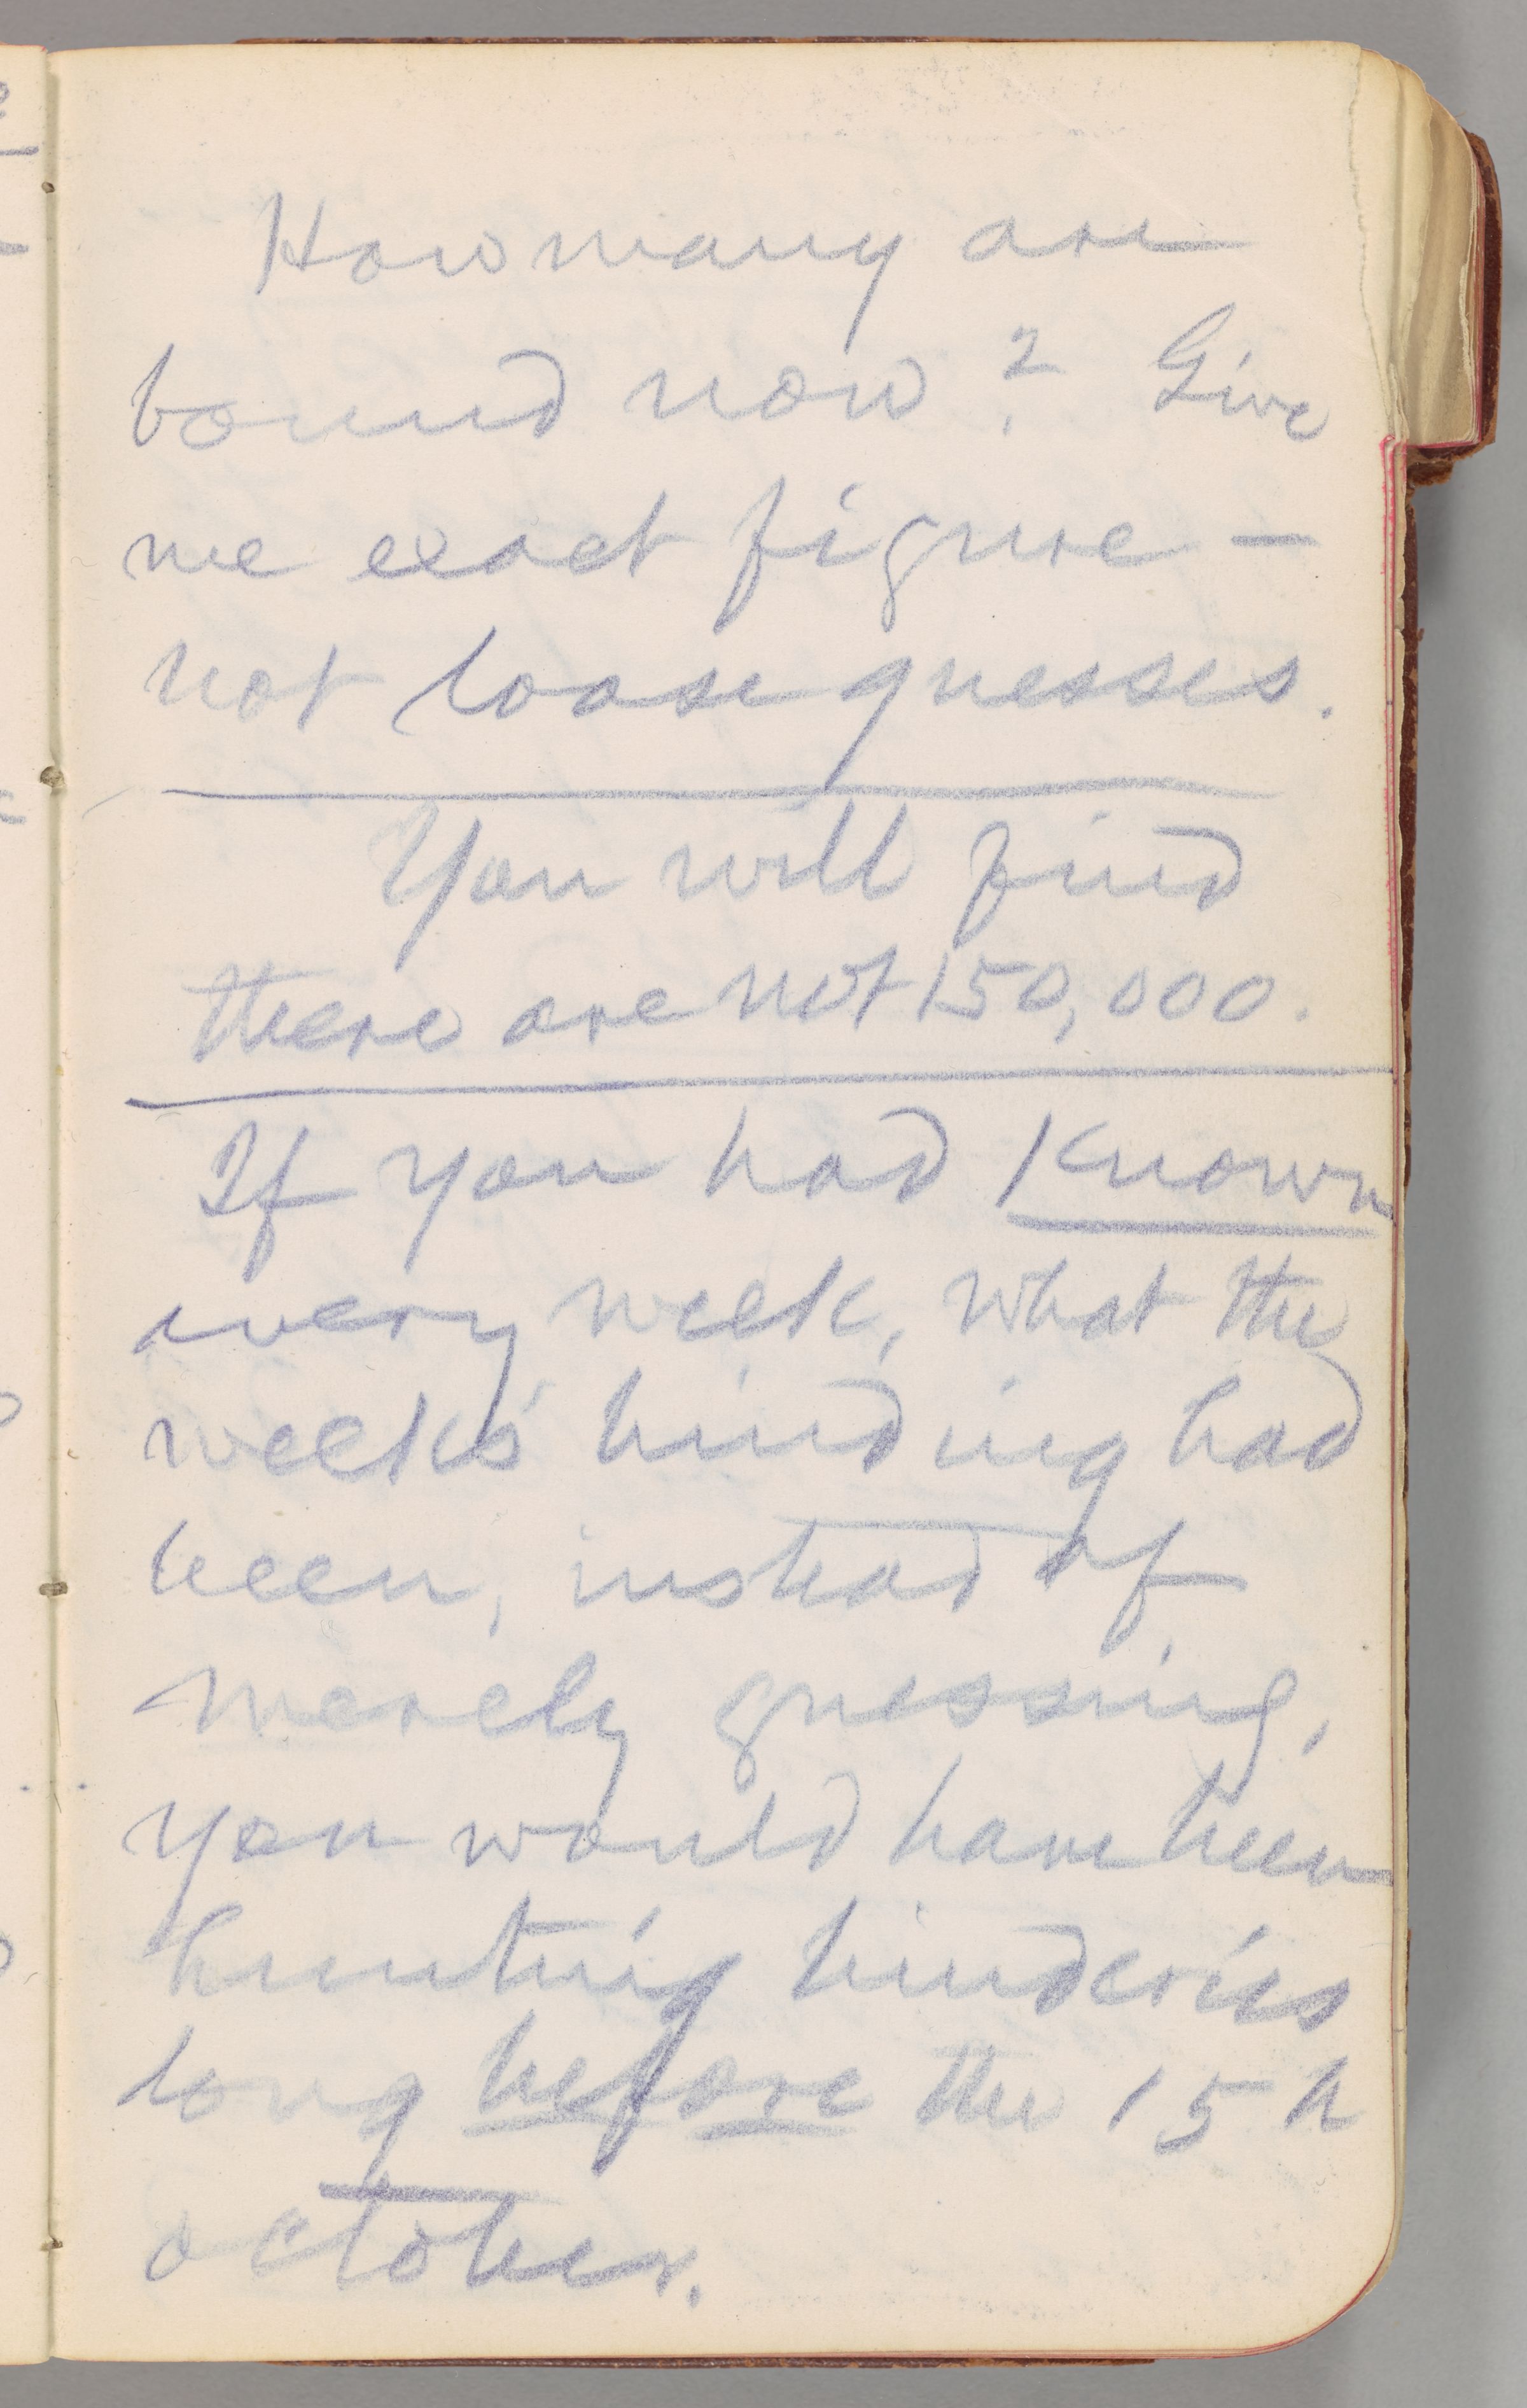 How many are
bound now? Give
me exact figure —
not loose guesses.
You will find
there are not 150,000.
If you had known
every week, what the
week's binding had
been, instead of
merely guessing,
you would have been
hunting binderies
long before the 15 h
october.